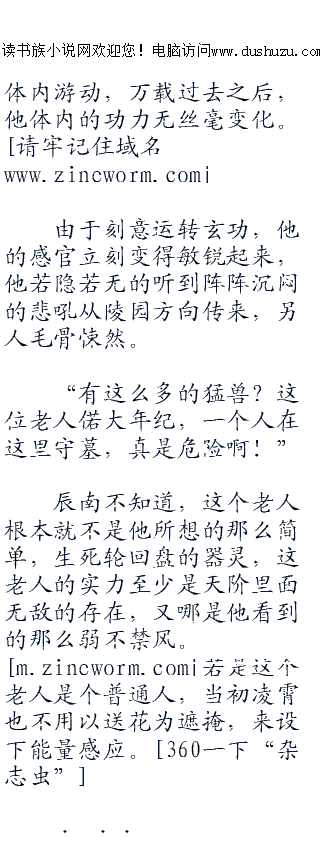 读书族小说网欢迎您！电脑访问www.dushuzu.com
体内游动，万载过去之后，
他体内的功力无丝毫变化。
[请牢记住域名
www.zincworm.com|
由于刻意运转玄功，他
的感官立刻变得敏锐起来，
他若隐若无的听到阵阵沉闷
的悲吼从陵园方向传来，另
人毛骨悚然。
“有这么多的猛兽？这
位老人偌大年纪，一个人在
这里守墓，真是危险啊！”
辰南不知道，这个老人
根本就不是他所想的那么简
单，生死轮回盘的器灵，这
老人的实力至少是天阶里面
无敌的存在，又哪是他看到
的那么弱不禁风。
[m.zincworm.com|若是这个
老人是个普通人，当初凌霄
也不用以送花为遮掩，来设
下能量感应。[360一下“杂
志虫”]
. . .